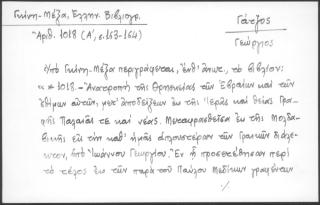 Γκίνη-Μέξα, Ἑλλην. Βιβλιογρ.
Ἀριθ. 1018 (Α', σ. 163-164)
Γάτζος
Γεώργιος
Ὑπὸ Γκίνη-Μέξα περιγράφεται, ἐνθ' ἀνωτ., τὸ βιβλίον:
« * 1018. - Ἀνατροπὴ τῆς Θρησκείας τῶν Ἑβραίων καὶ τῶν
ἐθίμων αὐτῶν, μετ' ἀποδείξεων ἐκ τῆς Ἱερᾶς καὶ θείας Γρα-
φῆς Παλαιᾶς τε καὶ νέας. Μεταφρασθεῖσα ἐκ τῆς Μολδα-
βικῆς εἰς τὴν καθ' ἡμᾶς ἁπλουστέραν τῶν Γραικῶν διάλε-
κτον, ὑπὸ Ἰωάννου Γεωργίου. Ἐν ᾗ προσετέθησαν περὶ
τὸ τέλος ἐκ τῶν παρὰ τοῦ Παύλου Μεδίκου γραφέντων